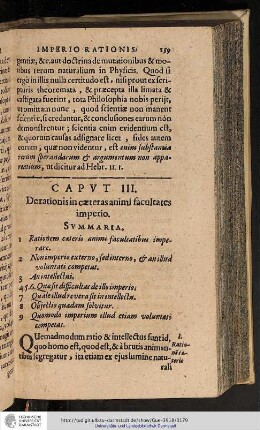 IMPERIO RATIONIS. 159
gentiæ, &c. aut doctrina de mutationibus & mo-
tibus rerum naturalium in Physicis. Quod si
ergò in illis nulla certitudo est, nisi prout ex scri-
pturis theoremata, & præcepta illa limata &
castigata fuerint, tota Philosophia nobis perijt,
ut omittam nunc, quod scientiæ non manent
scientiæ, si credantur, & conclusiones earum non
demonstrentur; scientia enim evidentium est,
& quorum causas assignare licet, fides autem
eorum, quæ non videntur, est enim substantia
rerum sperandarum & argumentum non appa-
rentium, ut dicitur ad Hebr. 11. 1.
CAPVT III.
De rationis in cæteras animi facultates
imperio.
SVMMARIA.
1 Rationem cæteris animi facultatibus impe-
rare.
2 Non imperio externo, sed interno, & an illud
voluntati competat.
3 An intellectui.
4 5 6 Quæsit difficultas de illo imperio;
7 Quale illud revera sit in intellectu.
8 Objectio quædam solvitur.
9 Quomodo imperium illud etiam voluntati
competat.
Quemadmodum ratio & intellectus fuit id,
quo homo est, quod est, & à brutis animan-
tibus segregatur, ita etiam ex ejus lumine natu-
rali
1.
Ratio-